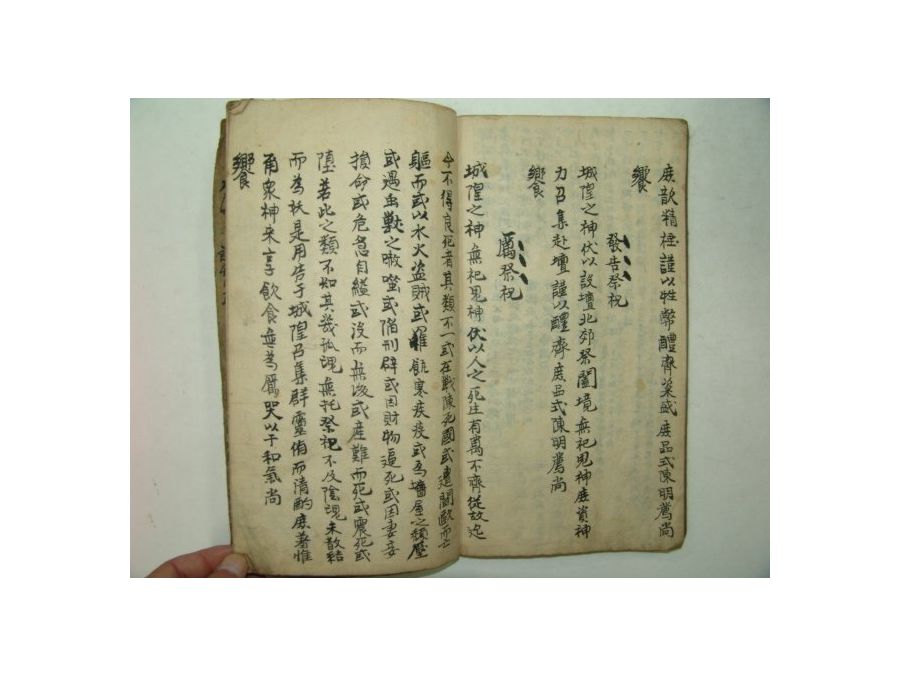 庶歆精禋謹以牲幣醴齊粢盛庶品式陳明薦尚
饗
發告祭祝
城隍之神伏以設壇北郊祭闔境無祀鬼神庶資神
力召集赴壇謹以醴齊庶品式陳明薦尚
饗
厲祭祝
城隍之神無祀鬼神伏以人之死生有萬不齊從古迄
今不得良死者其類不一或在戰陳死國或遭鬪歐而亡
軀而或以水火盜賊或罹飢寒疾疫或爲墻屋之頹壓
或遇虫獸之噬或陷刑辟或因財物逼死或因妻妾
捐命或危急自縊或沒而無後或産難而死或震死或
墮若此之類不知其幾孤魂無托祭祀不及陰魂未散結
而為妖是用告于城隍召集群靈侑而清酌庶羞惟
甭衆神來享飲食無為厲哭以干和氣尚
饗